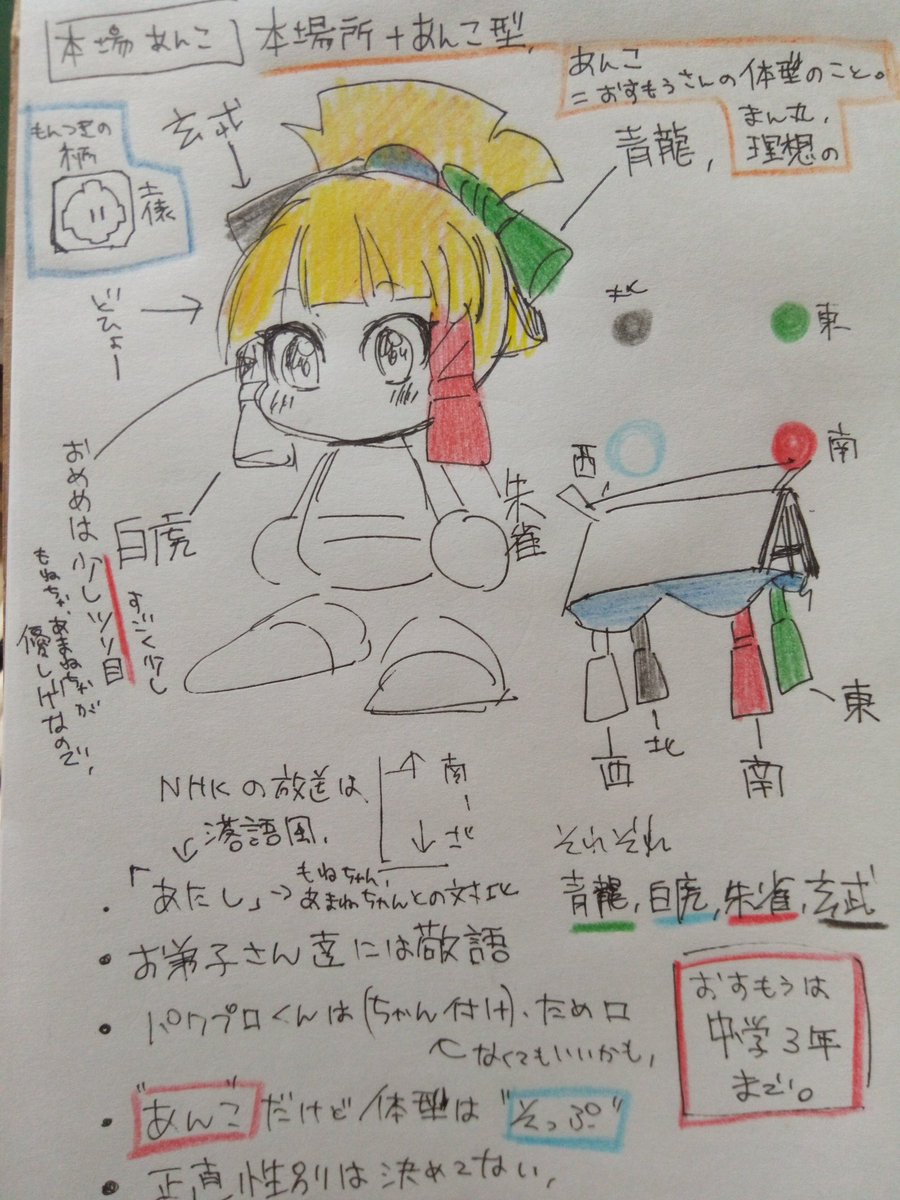 本場あんこ
本場所+あんこ型、
あんこ
=おすもうさんの体型のこと。
まん丸、
理想の
もんつきの
柄
土俵
玄武
青龍、
どひょー
北
東
西
南
白虎
朱雀
おめめは少しツリ目
すごく少し
もねちゃ、あまねちゃが
優しげなので、
西
北
南
東
NHKの放送は、
南ー北
落語風、
「あたし」→
もねちゃん、
あまねちゃんとの対比
それぞれ
青龍、白虎、朱雀、玄武
・お弟子さん達には敬語
・パワプロくんは(ちゃん付け)、ため口
なくてもいいかも、
おすもうは
中学3年
まで。
・"あんこ"だけど体型は"そっぷ"
・正直性別は決めてない、